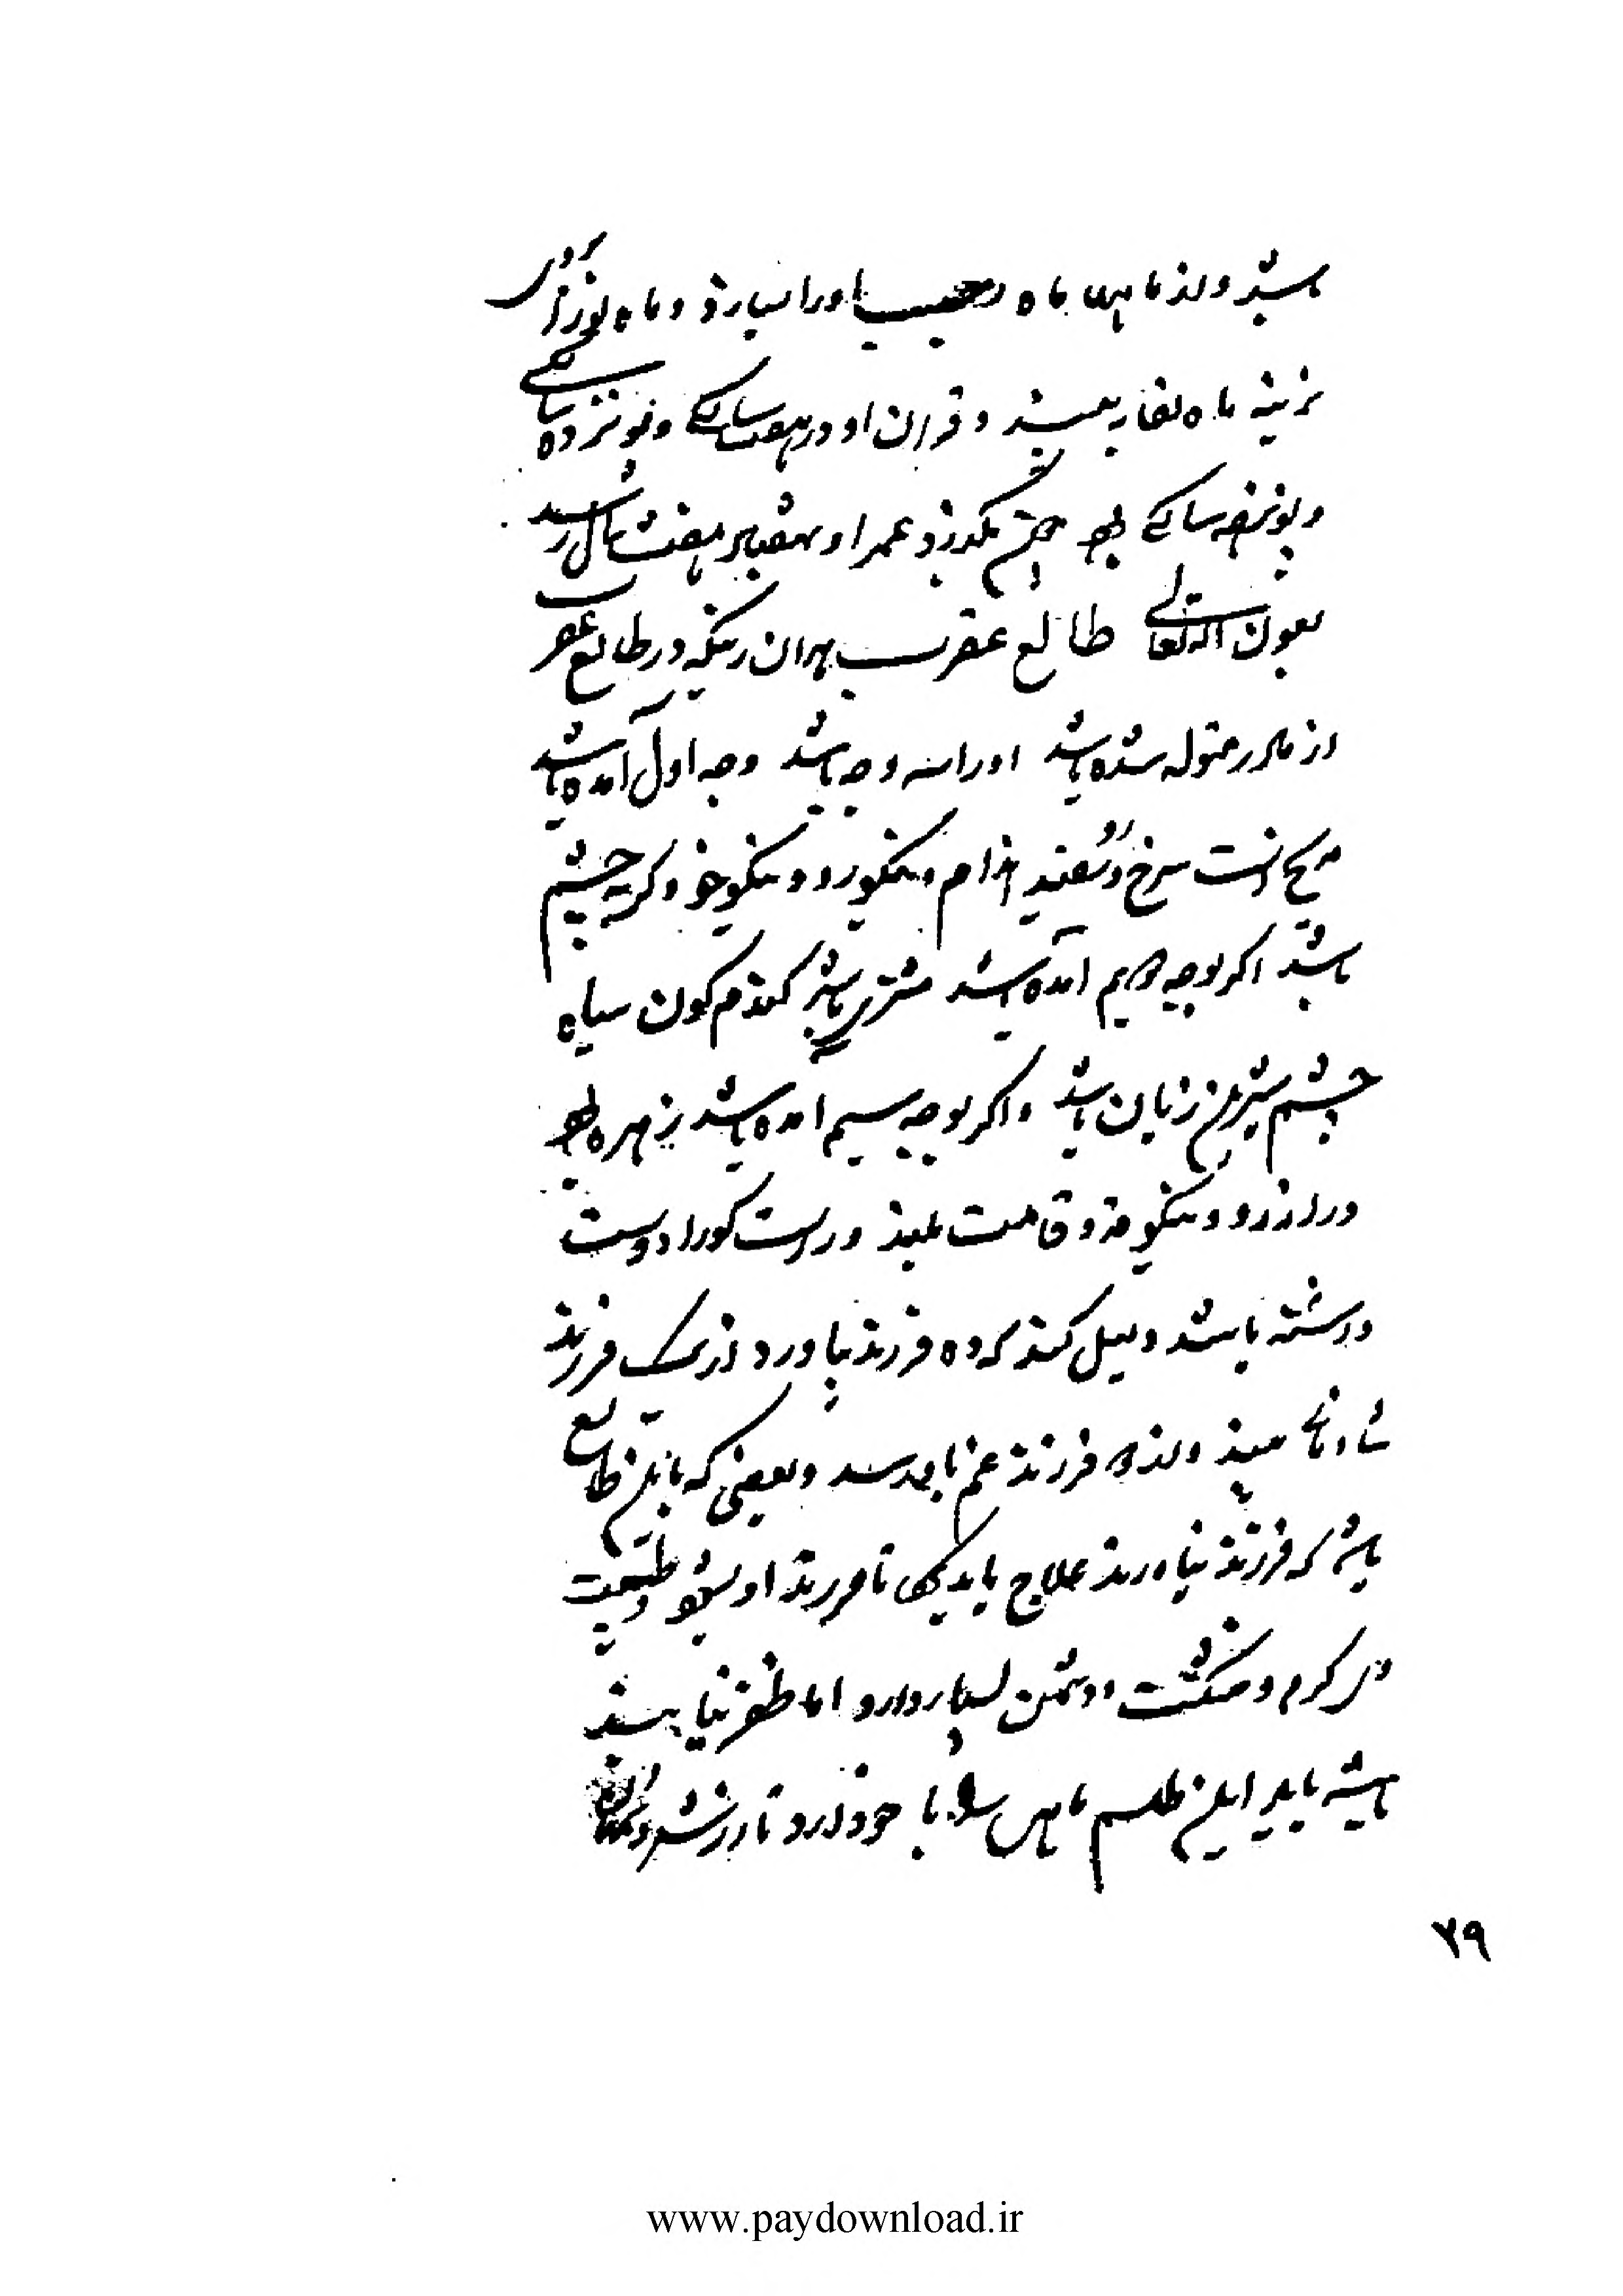 باشد و از ماهها ماه رجب او را بسیارد و ماه نو را بروی
نرینه ماه بیند و قران او در هفت سالگی و نوزده سالگی
سالگی چون بگذرد عمر او بهفتاد هفت سال رسد
بعون الله تعالی طالع عقرب بدان زنیکه در طالع عقرب
از مادر متولد شده باشد او را سه وجه باشد وجه اول آمده باشد
مریخ است سرخ و سفید اندام و نیکو رو و نیکو خو و گربه چشم
باشد اگر بوجه دویم آمده باشد مشتری باشد گندم گون سیاه
چشم شیرین زبان باشد و اگر بوجه سیم آمده باشد زهره بود
دراز رو و نیکو قد و قامت بلند و راست گو را دوست
داشته باشد و میل کند که ده فرزند بیاورد از یک فرزند
شادمانی بیند و از فرزند غم باو رسد و بعضی که باین طالع
باشد که فرزند نیاورند علاج باید کرد تا فرزند او بشود طبیعت
گرم و خشکست دشمن بسیار دارد اما ظفر نیابند
همیشه باید این طلسم ماهی را با خود دارد تا از شر
۷۹
www.paydownload.ir